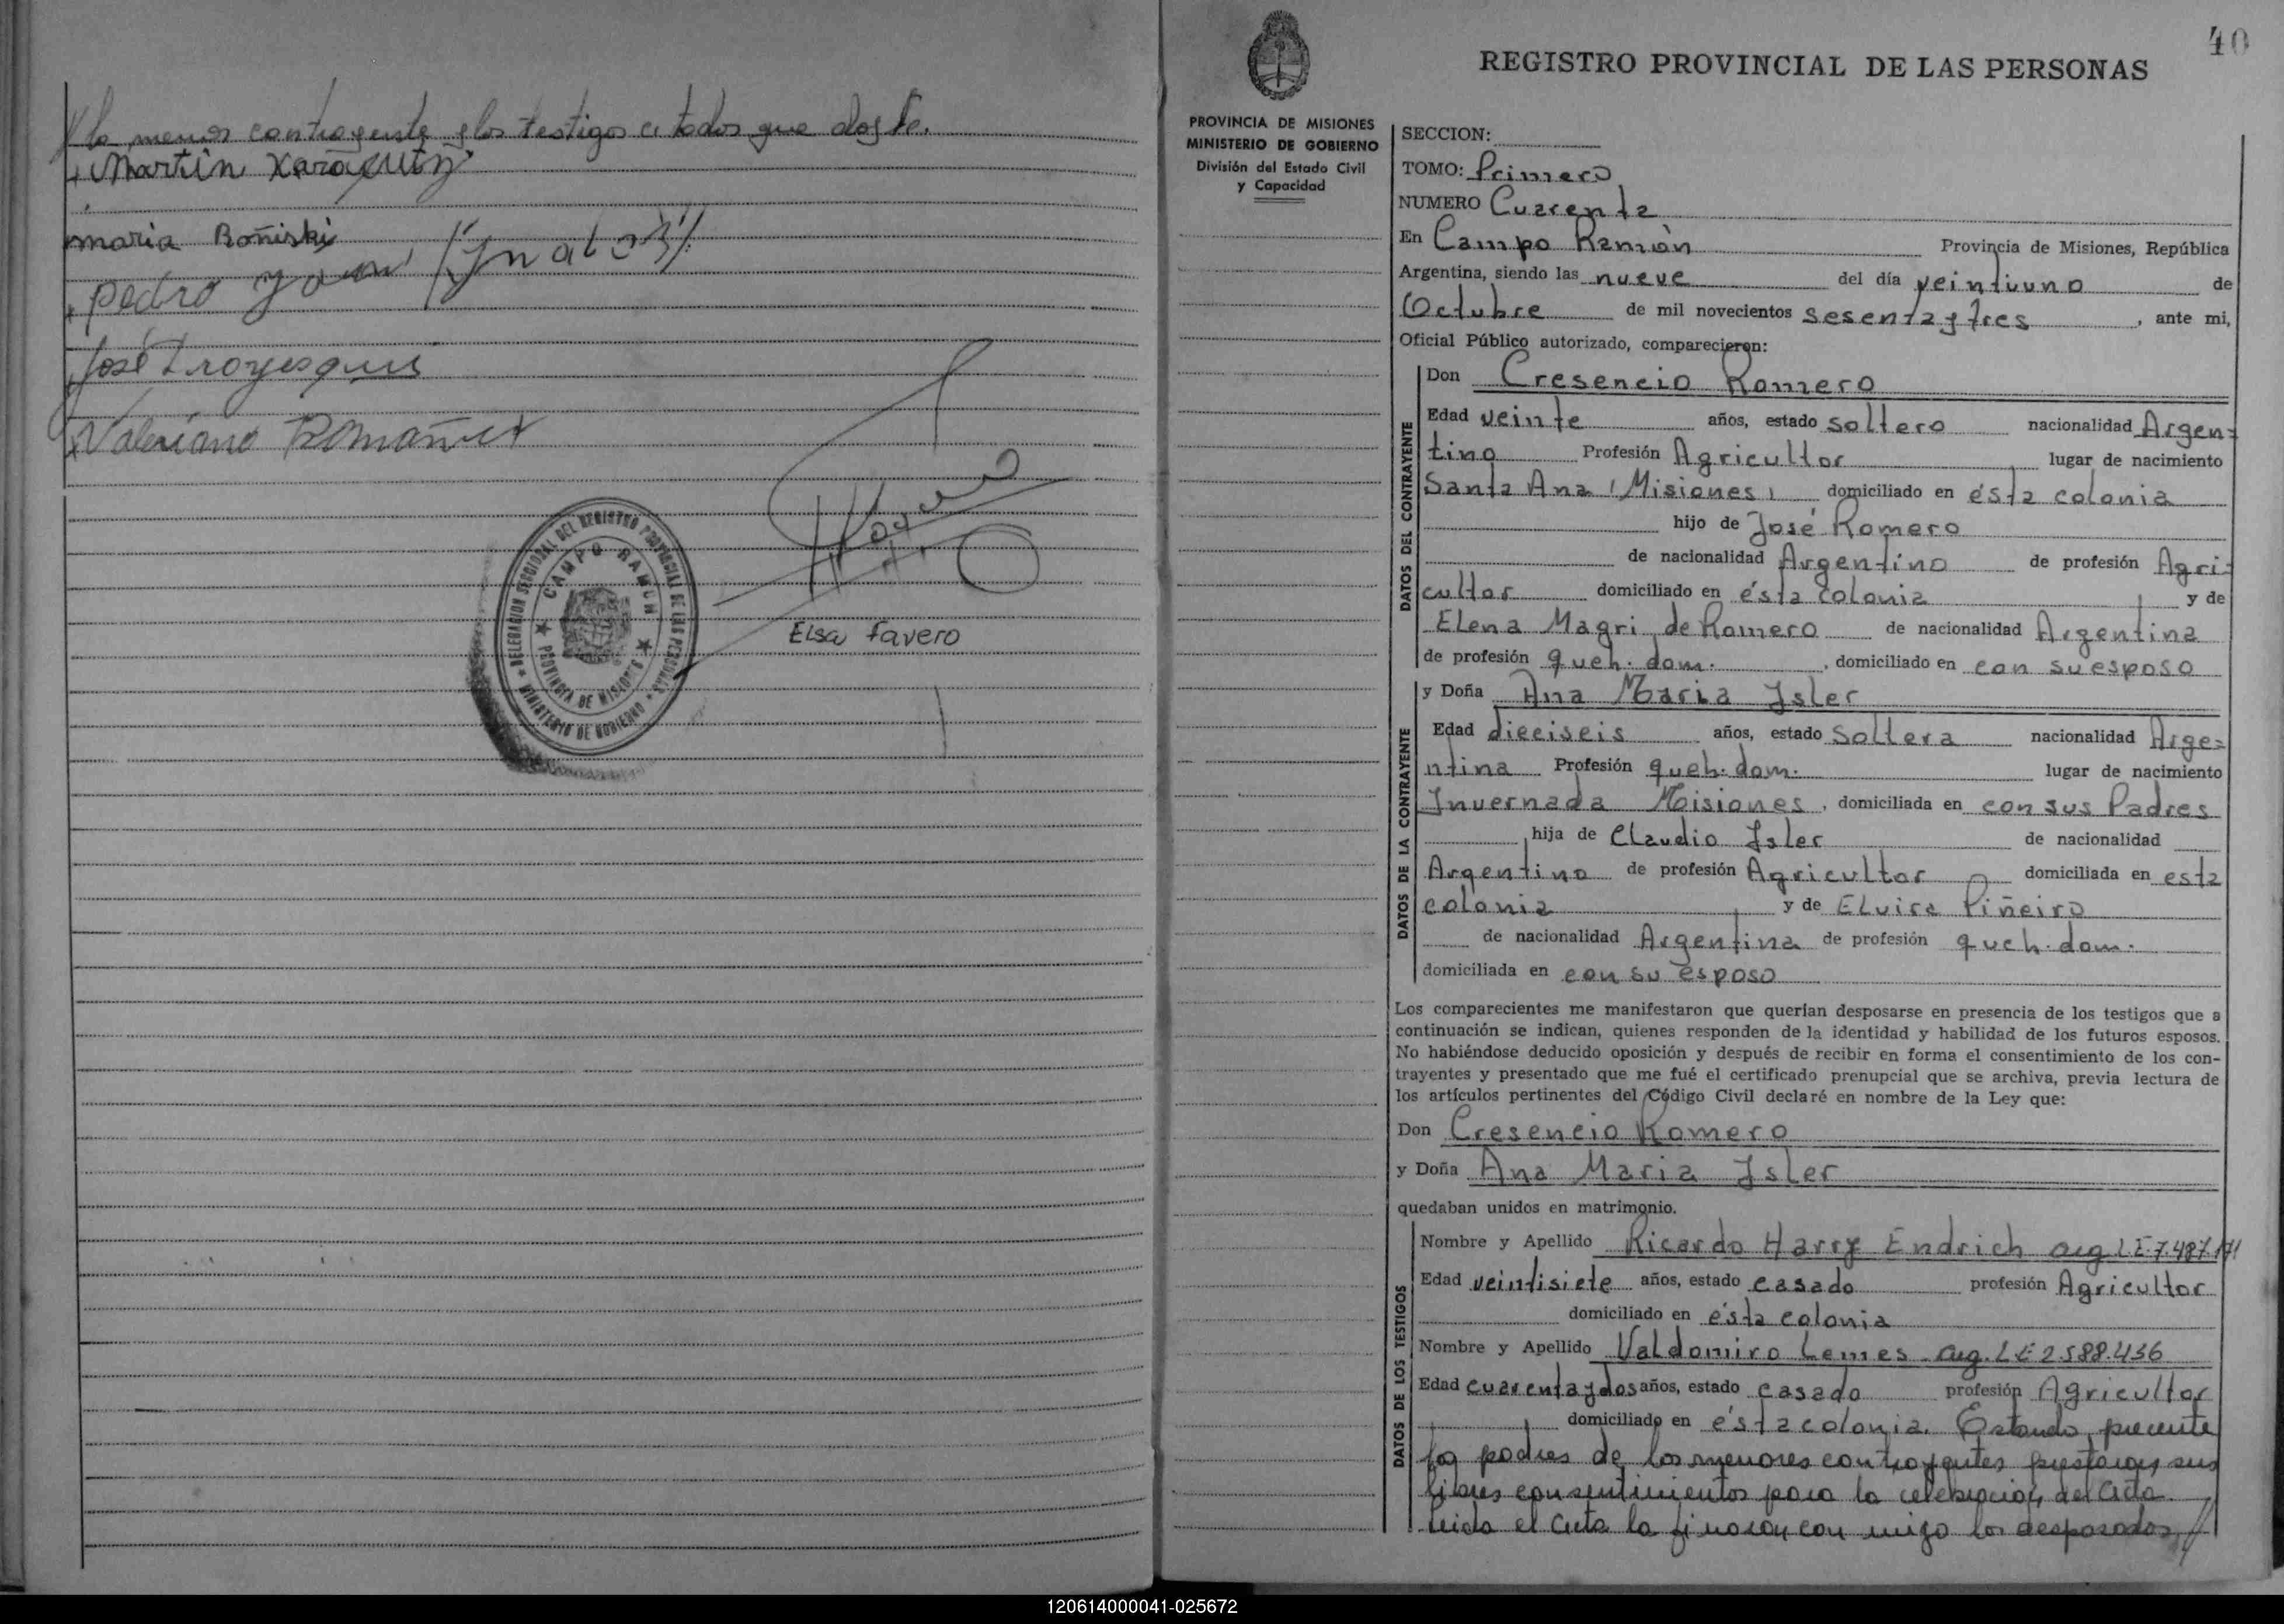 la menor contrayente y los testigos citados que doy fe.
Martin Karaquin
maria Boñiski
pedro
José Troyesquis
Valeriano Romañuk
DELEGACION SECCIONAL DEL REGISTRO PROVINCIAL DE LAS PERSONAS
CAMPO RAMON
PROVINCIA DE MISIONES
MINISTERIO DE GOBIERNO
Elsa Favero
40
REGISTRO PROVINCIAL DE LAS PERSONAS
PROVINCIA DE MISIONES
MINISTERIO DE GOBIERNO
División del Estado Civil
y Capacidad
SECCION:
TOMO: Primero
NUMERO Cuarenta
En Campo Ramón Provincia de Misiones, República
Argentina, siendo las nueve del día veintiuno de
Octubre de mil novecientos sesenta y tres, ante mi,
Oficial Público autorizado, comparecieron:
DATOS DEL CONTRAYENTE
Don Cresencio Romero
Edad veinte años, estado soltero nacionalidad Argen-
tino Profesión Agricultor lugar de nacimiento
Santa Ana (Misiones) domiciliado en ésta colonia
hijo de José Romero
de nacionalidad Argentino de profesión Agri-
cultor domiciliado en ésta colonia y de
Elena Magri de Romero de nacionalidad Argentina
de profesión queh. dom., domiciliado en con su esposo
DATOS DE LA CONTRAYENTE
y Doña Ana Maria Isler
Edad dieciseis años, estado Soltera nacionalidad Arge=
ntina Profesión queh. dom. lugar de nacimiento
Invernada Misiones, domiciliada en con sus Padres
hija de Claudio Isler de nacionalidad
Argentino de profesión Agricultor domiciliada en esta
colonia y de Elvira Piñeiro
de nacionalidad Argentina de profesión queh. dom.
domiciliada en con su esposo
Los comparecientes me manifestaron que querían desposarse en presencia de los testigos que a
continuación se indican, quienes responden de la identidad y habilidad de los futuros esposos.
No habiéndose deducido oposición y después de recibir en forma el consentimiento de los con-
trayentes y presentado que me fué el certificado prenupcial que se archiva, previa lectura de
los artículos pertinentes del Código Civil declaré en nombre de la Ley que:
Don Cresencio Romero
y Doña Ana Maria Isler
quedaban unidos en matrimonio.
DATOS DE LOS TESTIGOS
Nombre y Apellido Ricardo Harry Endrich arg. L.E 7.487.171
Edad veintisiete años, estado casado profesión Agricultor
domiciliado en ésta colonia
Nombre y Apellido Valdomiro Lemes arg. L E 2.588.436
Edad cuarenta y dos años, estado casado profesión Agricultor
domiciliado en ésta colonia. Estando precente
los padres de los menores contrayentes prestaron sus
libres consentimientos para la celebracion del Acta.
Leida el Acta la firman con migo los desposados,//
120614000041-025672